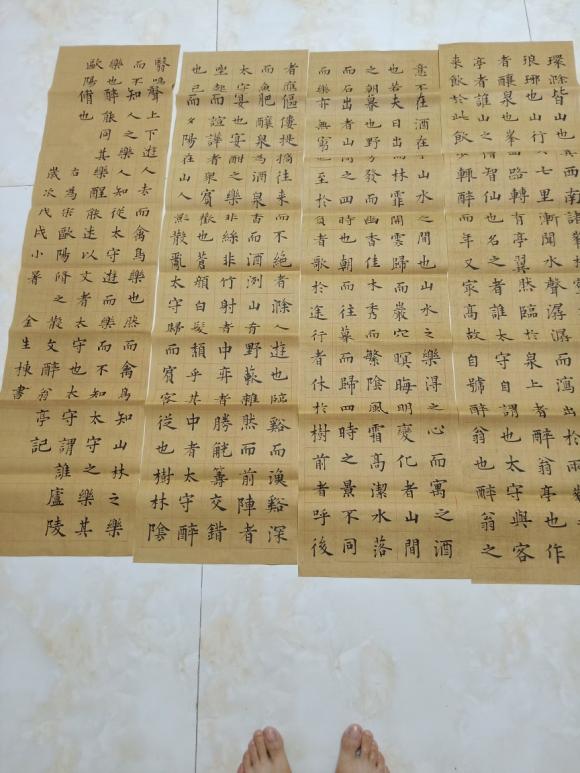 環滁皆山也其西南諸
琅琊也山行六七里漸聞水聲潺潺而瀉出於兩
者釀泉也峯回路轉有亭翼然臨於泉上者醉翁亭也作
亭者誰山之僧智仙也名之者誰太守自謂也太守與客
來飲於此飲少輒醉而年又最高故自號醉翁也醉翁之
意不在酒在乎山水之間也山水之樂得之心而寓之酒
也若夫日出而林霏開雲歸而巖穴暝晦明變化者山間
之朝暮也野芳發而幽香佳木秀而繁陰風霜高潔水落
而石出者山間之四時也朝而往暮而歸四時之景不同
而樂亦無窮也至於負者歌於途行者休於樹前者呼後
者應傴僂提攜往來而不絕者滁人遊也臨谿而漁谿深
而魚肥釀泉為酒泉香而酒洌山肴野蔌雜然而前陣者
太守宴也宴酣之樂非絲非竹射者中弈者勝觥籌交錯
坐起而諠譁者眾賓歡也蒼顏白髮頹乎其中者太守醉
也已而夕陽在山人影散亂太守歸而賓客從也樹林陰
翳鳴聲上下遊人去而禽鳥樂也然而禽鳥知山林之樂
而不知人之樂人知從太守遊而樂而不知太守之樂其
樂也醉能同其樂醒能述以文者太守也太守謂誰廬陵
歐陽脩也
右為宋歐陽脩之散文醉翁亭記
歲次戊戌小暑 金生棟書